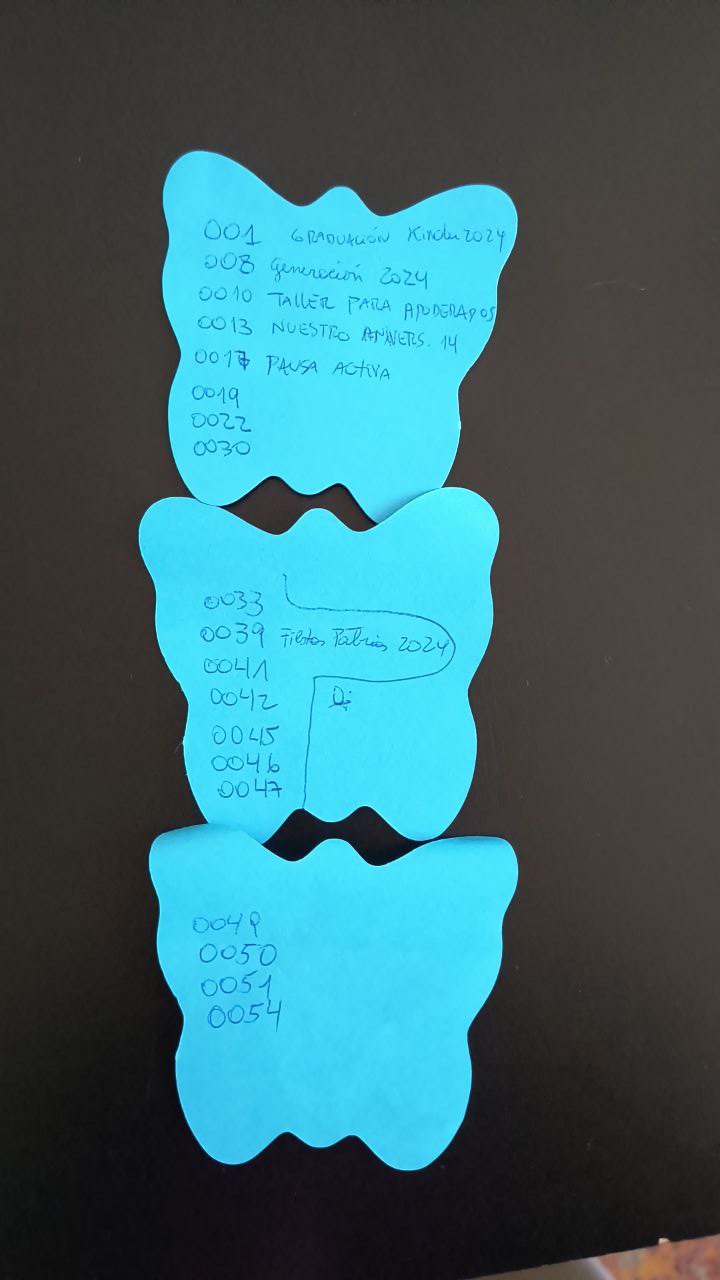 001 GRADUACIÓN Kinder 2024
008 Generación 2024
0010 TALLER PARA APODERADOS
0013 NUESTRO ANIVERS. 14
0017 PAUSA ACTIVA
0019
0022
0030
0033
0039 Fiestas Patrias 2024
0041
0042
0045
0046
0047
0049
0050
0051
0054